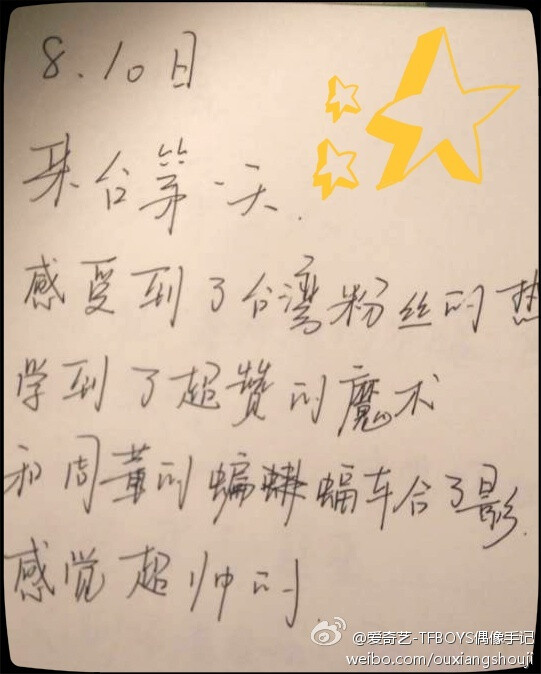 8.10日
来台第一天.
感受到了台湾粉丝的热
学到了超赞的魔术
和周董的蝙蝠车合了影.
感觉超帅的
@爱奇艺-TFBOYS偶像手记
weibo.com/ouxiangshouji